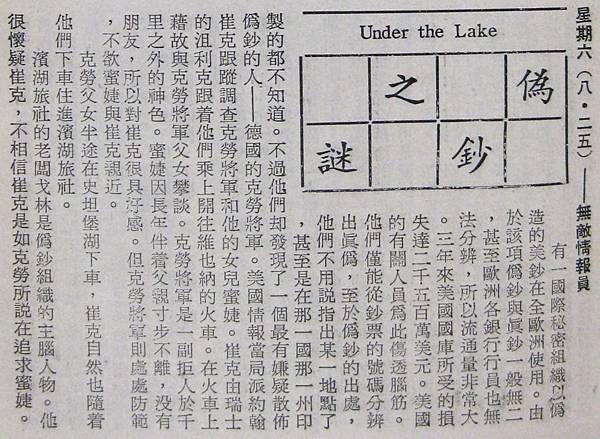 星期六（八·二五）——無敵情報員
Under the Lake
偽鈔之謎
有一國際秘密組織以僞
造的美鈔在全歐洲使用。由
於該項僞鈔與眞鈔一般無二
，甚至歐洲各銀行行員也無
法分辨，所以流通量非常大
。三年來美國國庫所受的損
失達二千五百萬美元。美國
的有關人員爲此傷透腦筋。
他們僅能從鈔票的號碼分辨
出眞僞，至於僞鈔的出處，
他們不用說指出某一地點了
，甚至是在那一國那一州印
製的都不知道。不過他們却發現了一個最有嫌疑散佈
僞鈔的人——德國的克勞將軍。美國情報當局派約翰
崔克跟蹤調查克勞將軍和他的女兒蜜婕。崔克由瑞士
的沮利克跟着他們乘上開往維也納的火車。在火車上
藉故與克勞將軍父女攀談。克勞將軍是一副拒人於千
里之外的神色。蜜婕因長年伴着父親寸步不離，沒有
朋友，所以對崔克很具好感。但克勞將軍則處處防範
，不欲蜜婕與崔克親近。
克勞父女半途在史坦堡湖下車，崔克自然也隨着
他們下車住進濱湖旅社。
濱湖旅社的老闆戈林是僞鈔組織的主腦人物。他
很懷疑崔克，不相信崔克是如克勞所說在追求蜜婕。